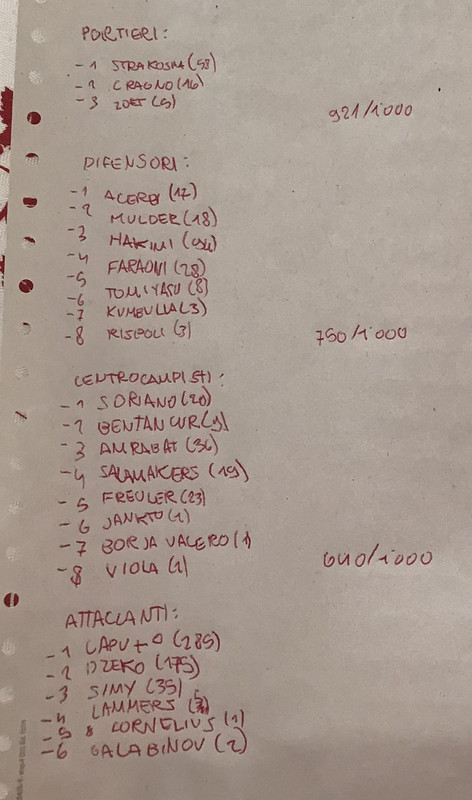 PORTIERI:
-1 STRAKOSHA (58)
-2 CRAGNO (16)
-3 ZOET (5)
921/1000
DIFENSORI:
-1 ACERBI (17)
-2 MULDER (18)
-3 HAKIMI (94)
-4 FARAONI (28)
-5 TOMIYASU (8)
-6 KUMBULLA (3)
-7 RISPOLI (3)
-8
750/1000
CENTROCAMPISTI:
-1 SORIANO (20)
-2 BENTANCUR
-3 AMRABAT (36)
-4 SALAMAKERS (19)
-5 FREULER (23)
-6 JANKTO (1)
-7 BORJA VALERO (1)
-8 VIOLA (1)
640/1000
ATTACCANTI:
-1 CAPUTO (285)
-2 DZEKO (175)
-3 SIMY (35)
-4 LAMMERS
-5 CORNELIUS (1)
-6 GALABINOV (2)